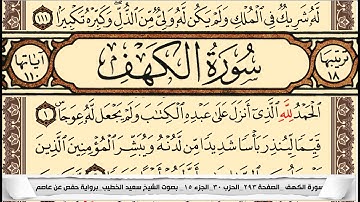 لَّهُۥ شَرِيكٌ فِى ٱلْمُلْكِ وَلَمْ يَكُن لَّهُۥ وَلِىٌّ مِّنَ ٱلذُّلِّ ۖ وَكَبِّرْهُ تَكْبِيرًۢا ١١١
ترتيبها ١٨ سُورَةُ الكَهْفِ آياتها ١١٠
ٱلْحَمْدُ لِلَّهِ ٱلَّذِىٓ أَنزَلَ عَلَىٰ عَبْدِهِ ٱلْكِتَٰبَ وَلَمْ يَجْعَل لَّهُۥ عِوَجَا ۜ ١
قَيِّمًا لِّيُنذِرَ بَأْسًا شَدِيدًا مِّن لَّدُنْهُ وَيُبَشِّرَ ٱلْمُؤْمِنِينَ ٱلَّذِينَ
سورة الكهف الصفحة ٢٩٣ الحزب ٣٠ الجزء ١٥ بصوت الشيخ سعيد الخطيب برواية حفص عن عاصم